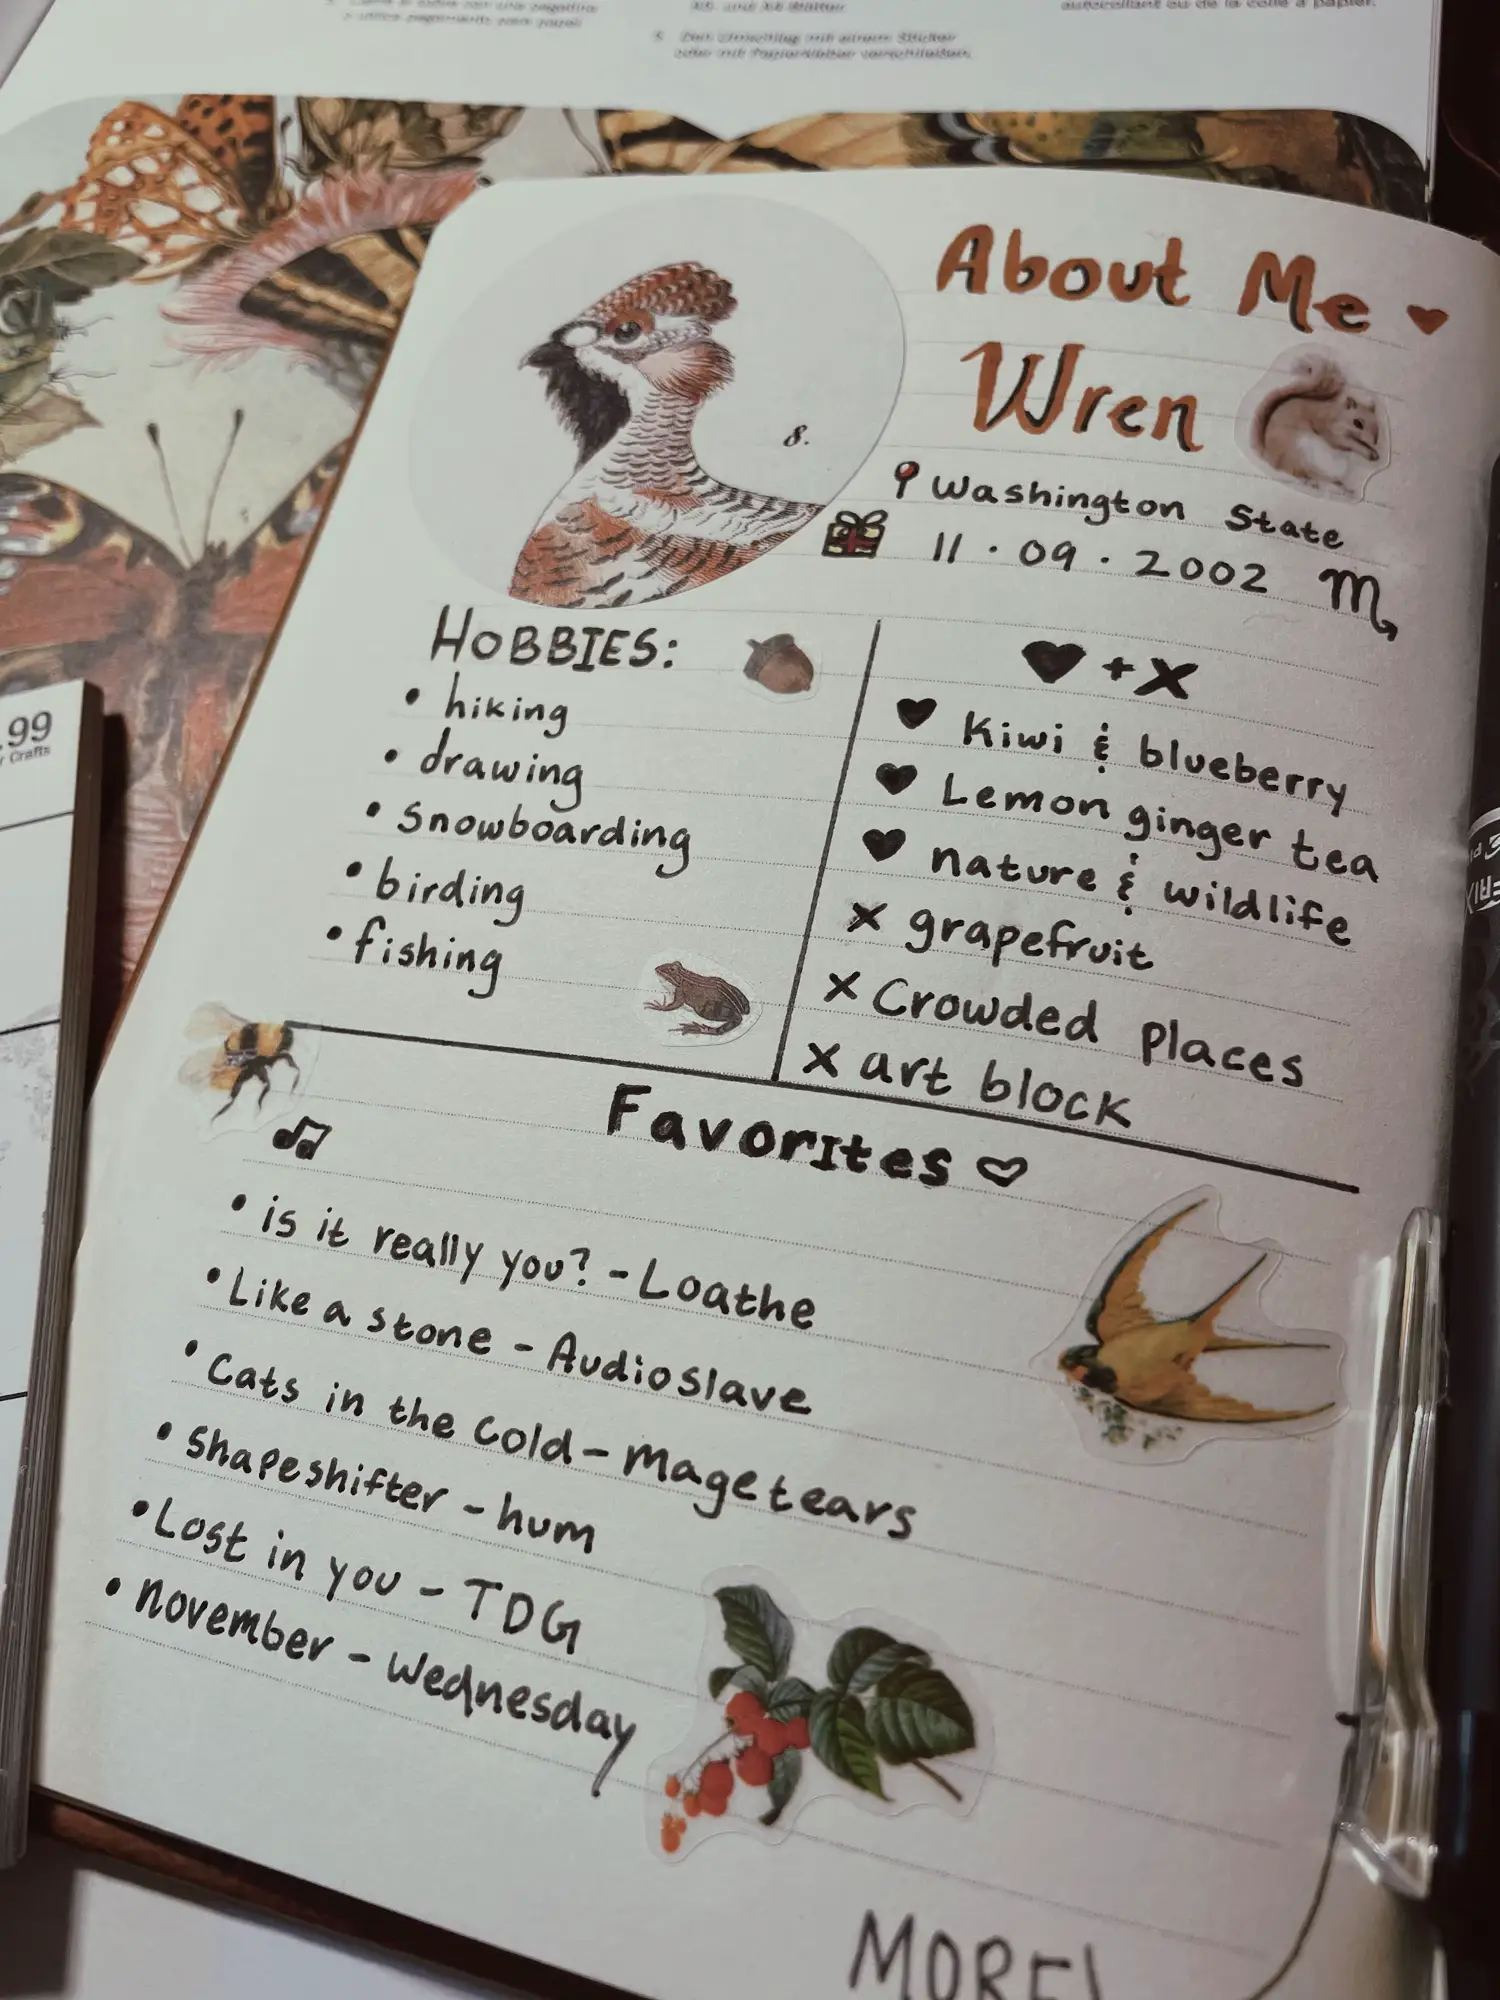 5. Den Umschlag mit einem Sticker
oder mit Papierkleber verschließen.
About Me ♥
Wren
8.
Washington State
11 · 09 · 2002 ♏
HOBBIES:
• hiking
• drawing
• Snowboarding
• birding
• fishing
♥ + X
♥ Kiwi & blueberry
♥ Lemon ginger tea
♥ nature & wildlife
X grapefruit
X Crowded Places
X art block
Favorites ♡
♫
• is it really you? - Loathe
• Like a stone - Audioslave
• Cats in the Cold - Magetears
• Shapeshifter - hum
• Lost in you - TDG
• November - Wednesday
MORE!
.99
Crafts